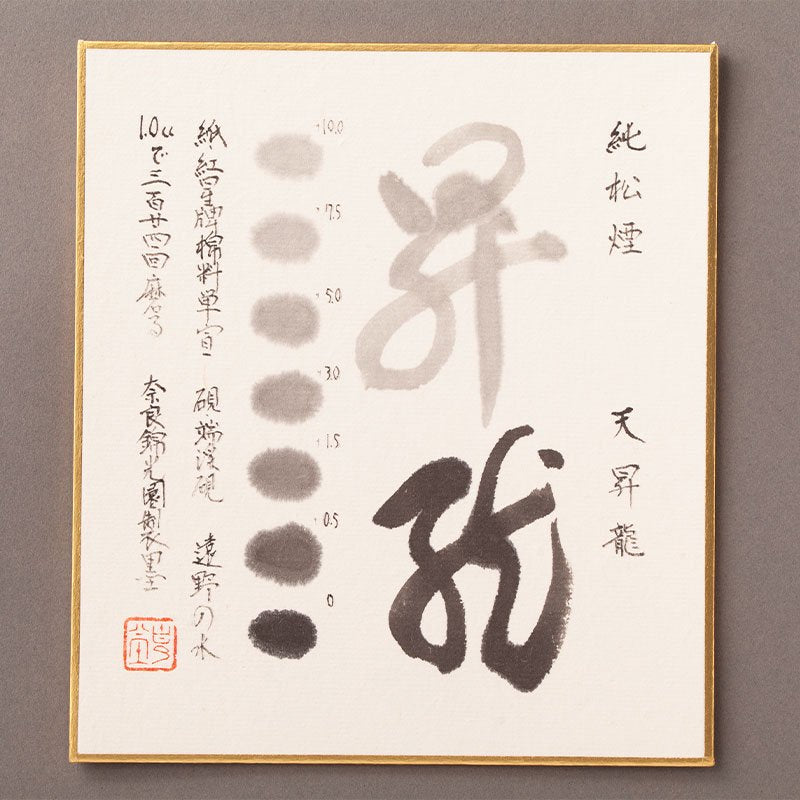 純松煙 天昇龍
昇龍
10.0
7.5
5.0
3.0
1.5
0.5
0
紙紅星牌棉料単宣 硯端渓硯 遠野の水
1.0ccで三百廿四回磨墨 奈良錦光園製墨